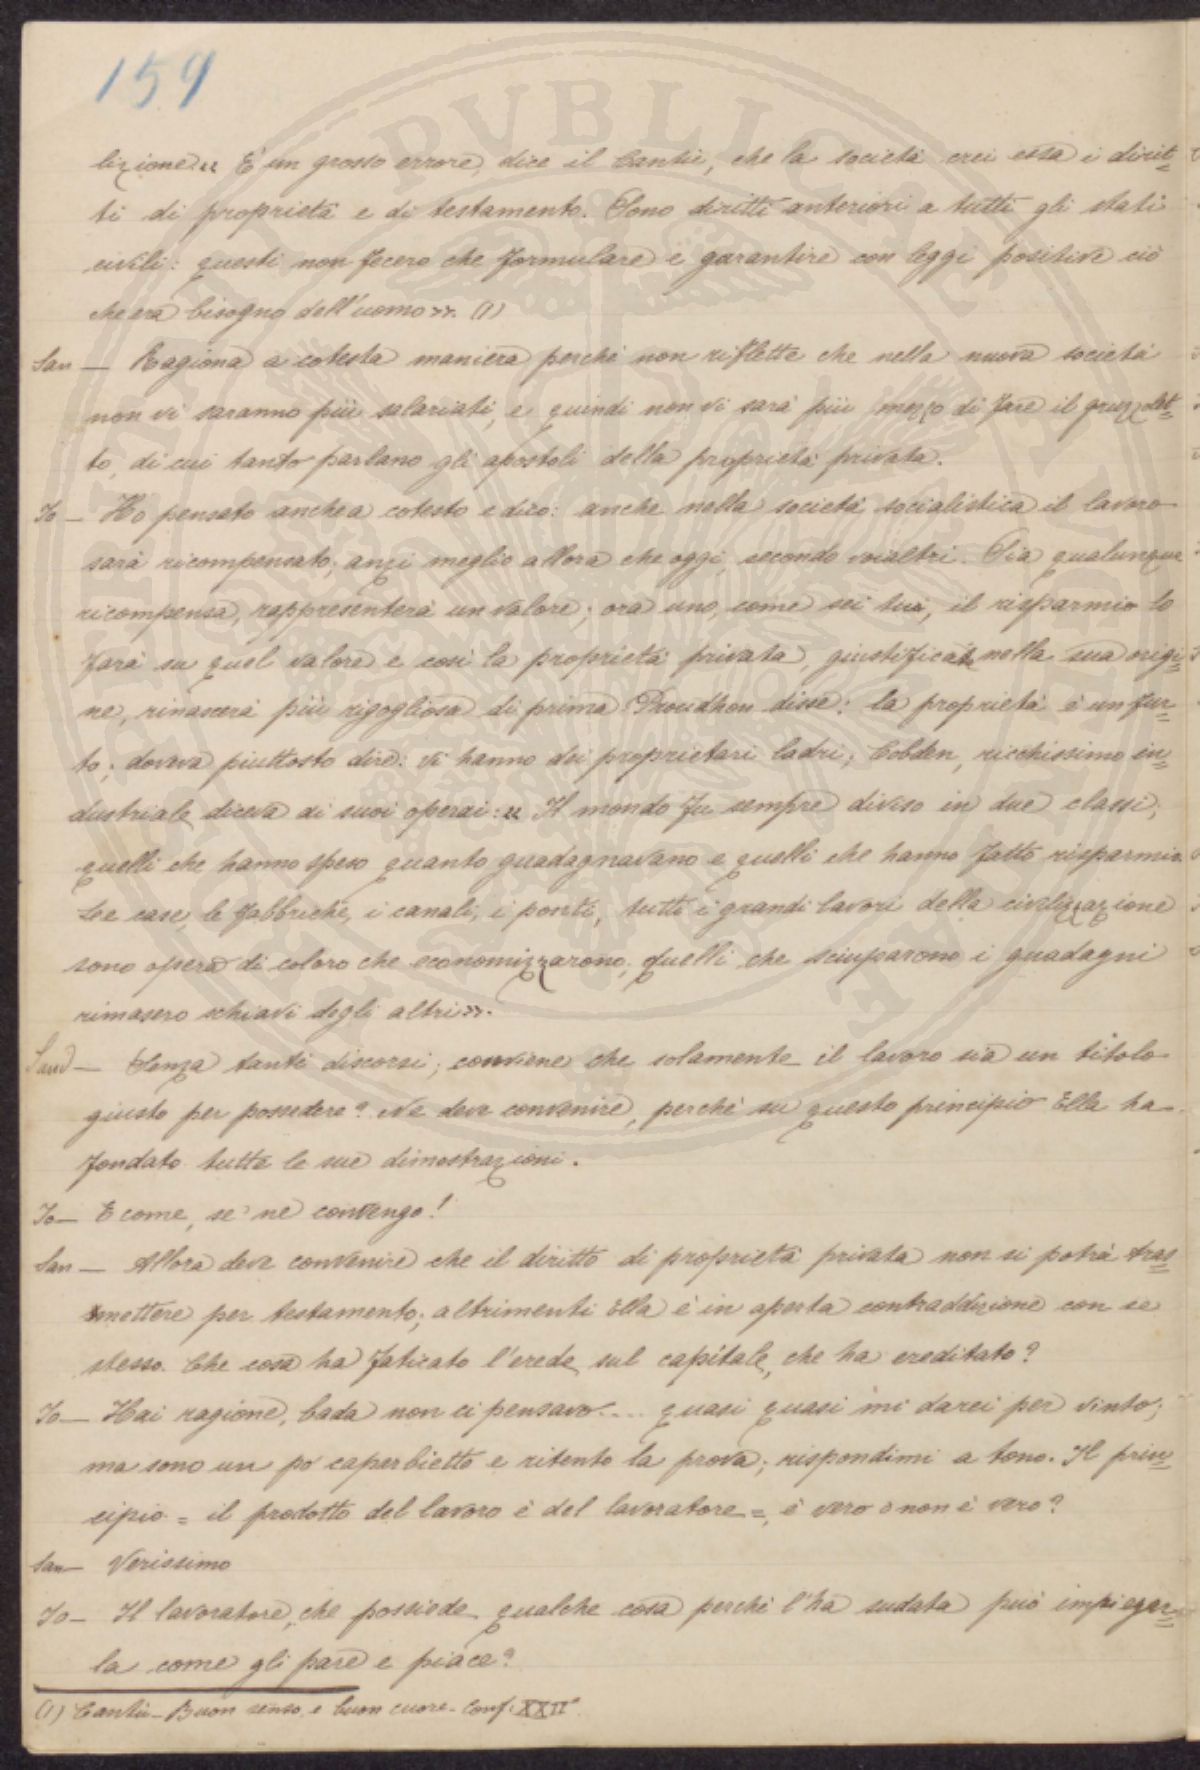 159
lizione « È un grosso errore, dice il Cantù, che la società crei essa i dirit=
ti di proprietà e di testamento. Sono diritti anteriori a tutti gli stati
civili: questi non fecero che formulare e garantire con leggi positive ciò
che era bisogno dell'uomo». (1)
San — Ragiona a cotesta maniera perchè non riflette che nella nuova società
non vi saranno più salariati, e quindi non vi sarà più mezzo di fare il gruzzolet=
to, di cui tanto parlano gli apostoli della proprietà privata.
Io — Ho pensato anche a cotesto e dico: anche nella società socialistica il lavoro
sarà ricompensato, anzi meglio allora che oggi, secondo voialtri. Sia qualunque
ricompensa, rappresenterà un valore; ora uno, come sei tu, il risparmio lo
farà su quel valore e così la proprietà privata, giustificata nella sua origi=
ne, rinascerà più rigogliosa di prima. Proudhon disse: la proprietà è un fur=
to; doveva piuttosto dire: vi hanno dei proprietari ladri; Cobden, ricchissimo in=
dustriale diceva ai suoi operai: « Il mondo fu sempre diviso in due classi;
quelli che hanno speso quanto guadagnavano e quelli che hanno fatto risparmio.
Lee case, le fabbriche, i canali, i ponti, tutti i grandi lavori della civilizzazione
sono opera di coloro che economizzarono; quelli che sciuparono i guadagni
rimasero schiavi degli altri».
Sand — Senza tanti discorsi; conviene che solamente il lavoro sia un titolo
giusto per possedere? Ne deve convenire, perchè su questo principio Ella ha
fondato tutte le sue dimostrazioni.
Io — E come, se ne convengo!
San — Allora deve convenire che il diritto di proprietà privata non si potrà tras=
mettere per testamento; altrimenti Ella è in aperta contraddizione con se
stesso. Che cosa ha faticato l'erede sul capitale, che ha ereditato?
Io — Hai ragione, bada non ci pensavo.... quasi quasi mi darei per vinto;
ma sono un po' caparbietto e ritento la prova; rispondimi a tono. Il prin=
cipio = il prodotto del lavoro è del lavoratore =, è vero o non è vero?
San — Verissimo
Io — Il lavoratore, che possiede qualche cosa perchè l'ha sudata può impiegar=
la come gli pare e piace?
(1) Cantù — Buon senso e buon cuore — Conf. XXIIª
PUBLICAE